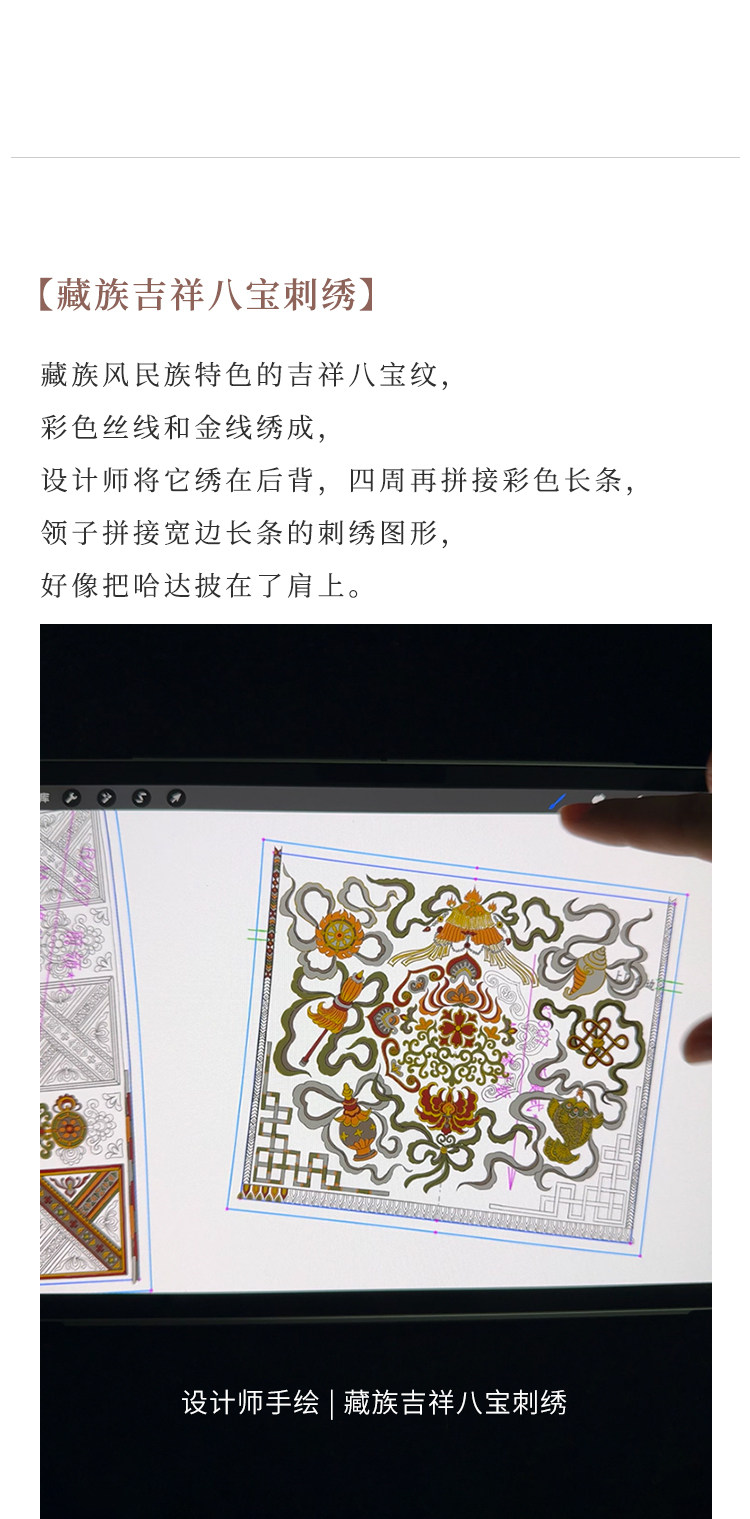 【藏族吉祥八宝刺绣】
藏族风民族特色的吉祥八宝纹，
彩色丝线和金线绣成，
设计师将它绣在后背，四周再拼接彩色长条，
领子拼接宽边长条的刺绣图形，
好像把哈达披在了肩上。
库
设计师手绘 | 藏族吉祥八宝刺绣